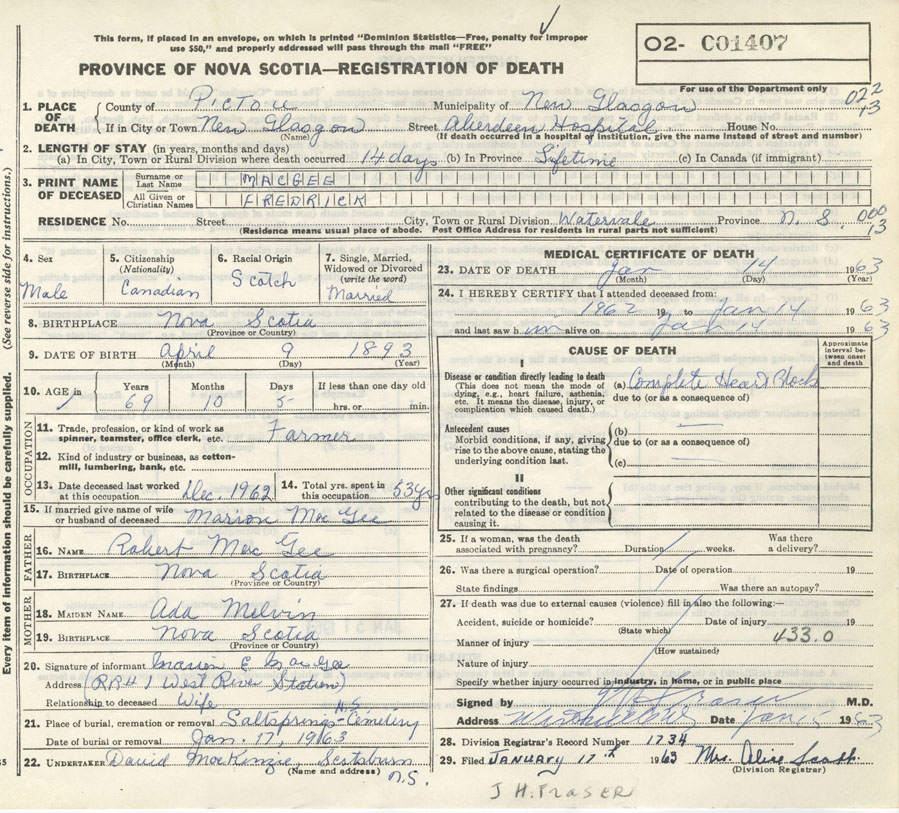 This form, if placed in an envelope, on which is printed "Dominion Statistics—Free, penalty for improper
use $50," and properly addressed will pass through the mail "FREE"
PROVINCE OF NOVA SCOTIA—REGISTRATION OF DEATH
O2- C01407
For use of the Department only
022
13
1. PLACE OF DEATH County of Pictou Municipality of New Glasgow
If in City or Town New Glasgow Street Aberdeen Hospital House No.
(Name) (If death occurred in a hospital or institution, give the name instead of street and number)
2. LENGTH OF STAY (in years, months and days)
(a) In City, Town or Rural Division where death occurred 14 days (b) In Province Lifetime (c) In Canada (if immigrant)
3. PRINT NAME OF DECEASED Surname or Last Name MACGEE
All Given or Christian Names FREDRICK
RESIDENCE No. Street City, Town or Rural Division Watervale Province N. S. 000
(Residence means usual place of abode. Post Office Address for residents in rural parts not sufficient) 13
(See reverse side for instructions.)
Every item of information should be carefully supplied.
4. Sex Male
5. Citizenship (Nationality) Canadian
6. Racial Origin Scotch
7. Single, Married, Widowed or Divorced (write the word) Married
8. BIRTHPLACE Nova Scotia
(Province or Country)
9. DATE OF BIRTH April 9 1893
(Month) (Day) (Year)
10. AGE in Years 69 Months 10 Days 5 If less than one day old hrs. or min.
OCCUPATION
11. Trade, profession, or kind of work as spinner, teamster, office clerk, etc. Farmer
12. Kind of industry or business, as cotton-mill, lumbering, bank, etc.
13. Date deceased last worked at this occupation Dec. 1962 14. Total yrs. spent in this occupation 53 yrs
15. If married give name of wife or husband of deceased Marion Mac Gee
FATHER
16. NAME Robert Mac Gee
17. BIRTHPLACE Nova Scotia
(Province or Country)
MOTHER
18. MAIDEN NAME Ada Melvin
19. BIRTHPLACE Nova Scotia
(Province or Country)
20. Signature of informant Marion E Mac Gee
Address (RR#1 West River Station)
Relationship to deceased Wife N.S.
21. Place of burial, cremation or removal Saltsprings-Cemetery
Date of burial or removal Jan. 17, 1963
22. UNDERTAKER David MacKenzie, Scotsburn
(Name and address) N.S.
MEDICAL CERTIFICATE OF DEATH
23. DATE OF DEATH Jan 14 1963
(Month) (Day) (Year)
24. I HEREBY CERTIFY that I attended deceased from:
1962 19 to Jan 14 1963
and last saw him alive on Jan 14 1963
CAUSE OF DEATH
Approximate interval between onset and death
I
Disease or condition directly leading to death
(This does not mean the mode of dying, e.g., heart failure, asthenia, etc. It means the disease, injury, or complication which caused death.)
(a) Complete Heart Block
due to (or as a consequence of)
Antecedent causes
Morbid conditions, if any, giving rise to the above cause, stating the underlying condition last.
(b)
due to (or as a consequence of)
(c)
II
Other significant conditions
contributing to the death, but not related to the disease or condition causing it.
25. If a woman, was the death associated with pregnancy? Duration weeks. Was there a delivery?
26. Was there a surgical operation? Date of operation 19
State findings Was there an autopsy?
27. If death was due to external causes (violence) fill in also the following:—
Accident, suicide or homicide? Date of injury 19
(State which)
Manner of injury 433.0
(How sustained)
Nature of injury
Specify whether injury occurred in industry, in home, or in public place
Signed by M.D.
Address Date Jan 1963
28. Division Registrar's Record Number 1734
29. Filed JANUARY 17th 1963 Mrs. Alice
(Division Registrar)
J H. FRASER